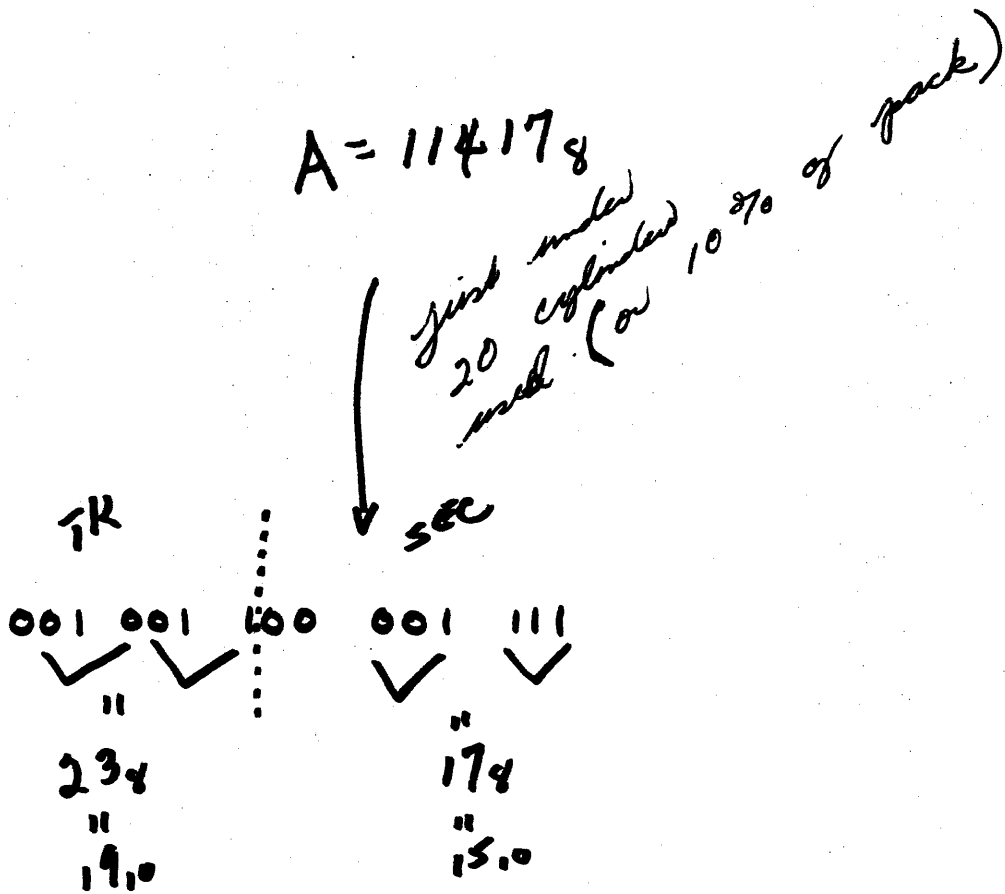 A = 11417₈
just under
20 cylinders
used. (or 10% of pack)
TK SEC
001 001 100 001 111
" "
23₈ 17₈
" "
19₁₀ 15₁₀